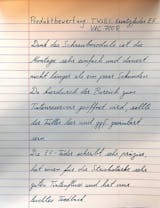 Produktbewertung: TWSBI Ersatzfeder EF
VAC 700R
Dank des Schraubmoduls ist die
Montage sehr einfach und dauert
nicht länger als ein paar Sekunden.
Da hierdurch der Bereich zum
Tintenreservoir geöffnet wird, sollte
der Füller leer und ggf. gereinigt
sein.
Die EF-Feder schreibt sehr präzise,
hat einen für die Strichstärke sehr
guten Tintenfluss und hat ein
leichtes Feedback.